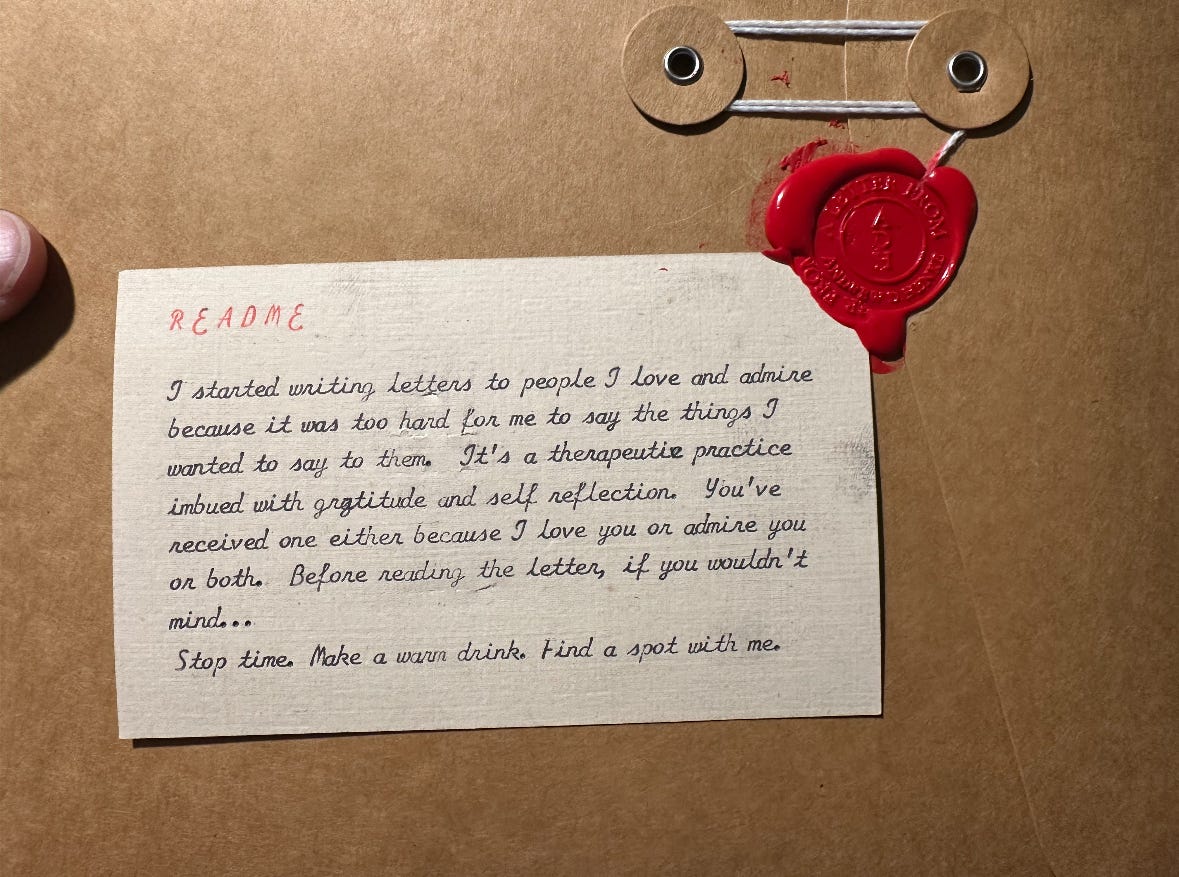 A LETTER FROM
README
I started writing letters to people I love and admire
because it was too hard for me to say the things I
wanted to say to them. It's a therapeutic practice
imbued with gratitude and self reflection. You've
received one either because I love you or admire you
or both. Before reading the letter, if you wouldn't
mind...
Stop time. Make a warm drink. Find a spot with me.